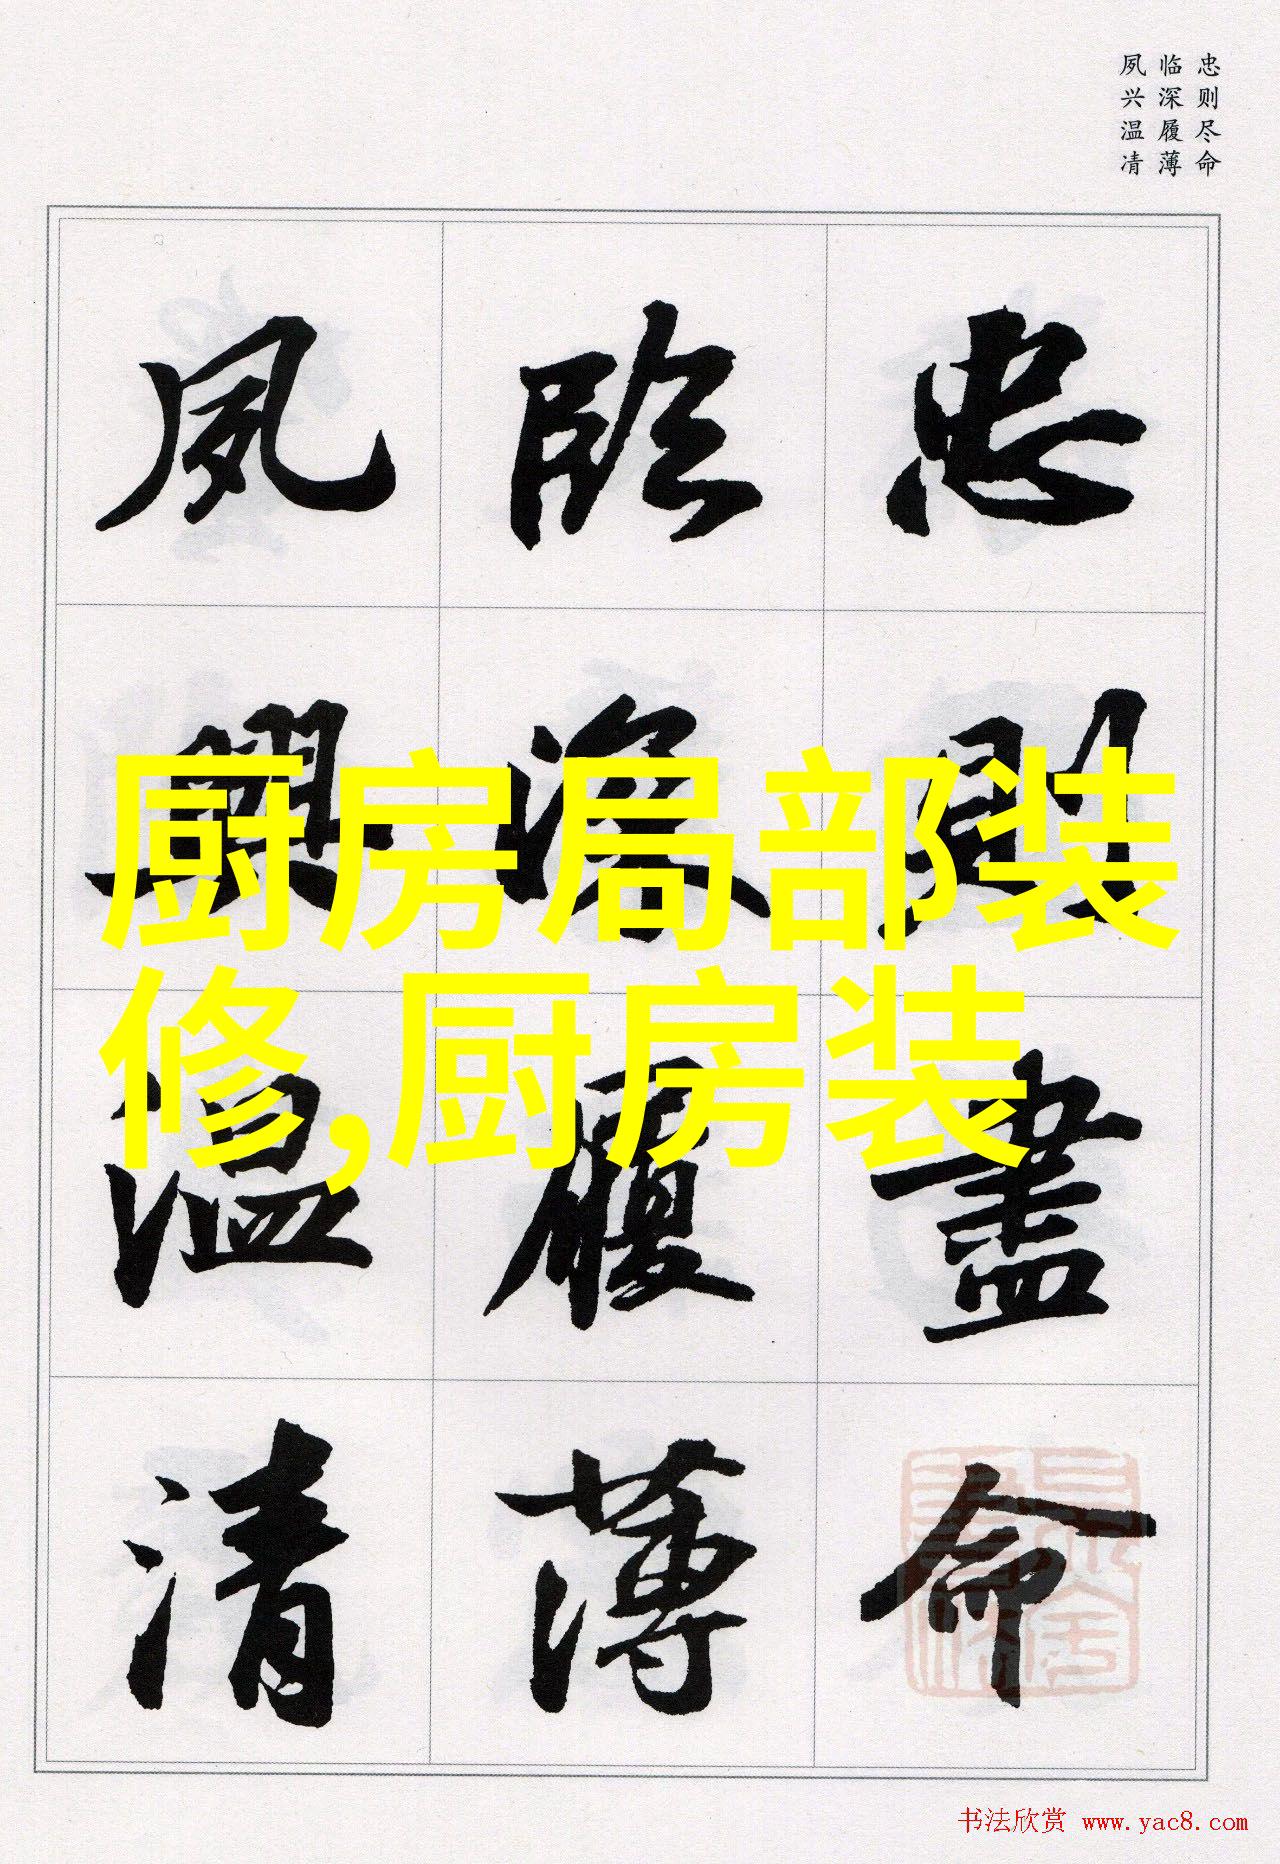 忠则尽命
临深履薄
夙兴温凊
忠則盡命
臨深履薄
夙興温清
厨房局部装
修,厨房装
书法欣赏 www.yac8.com